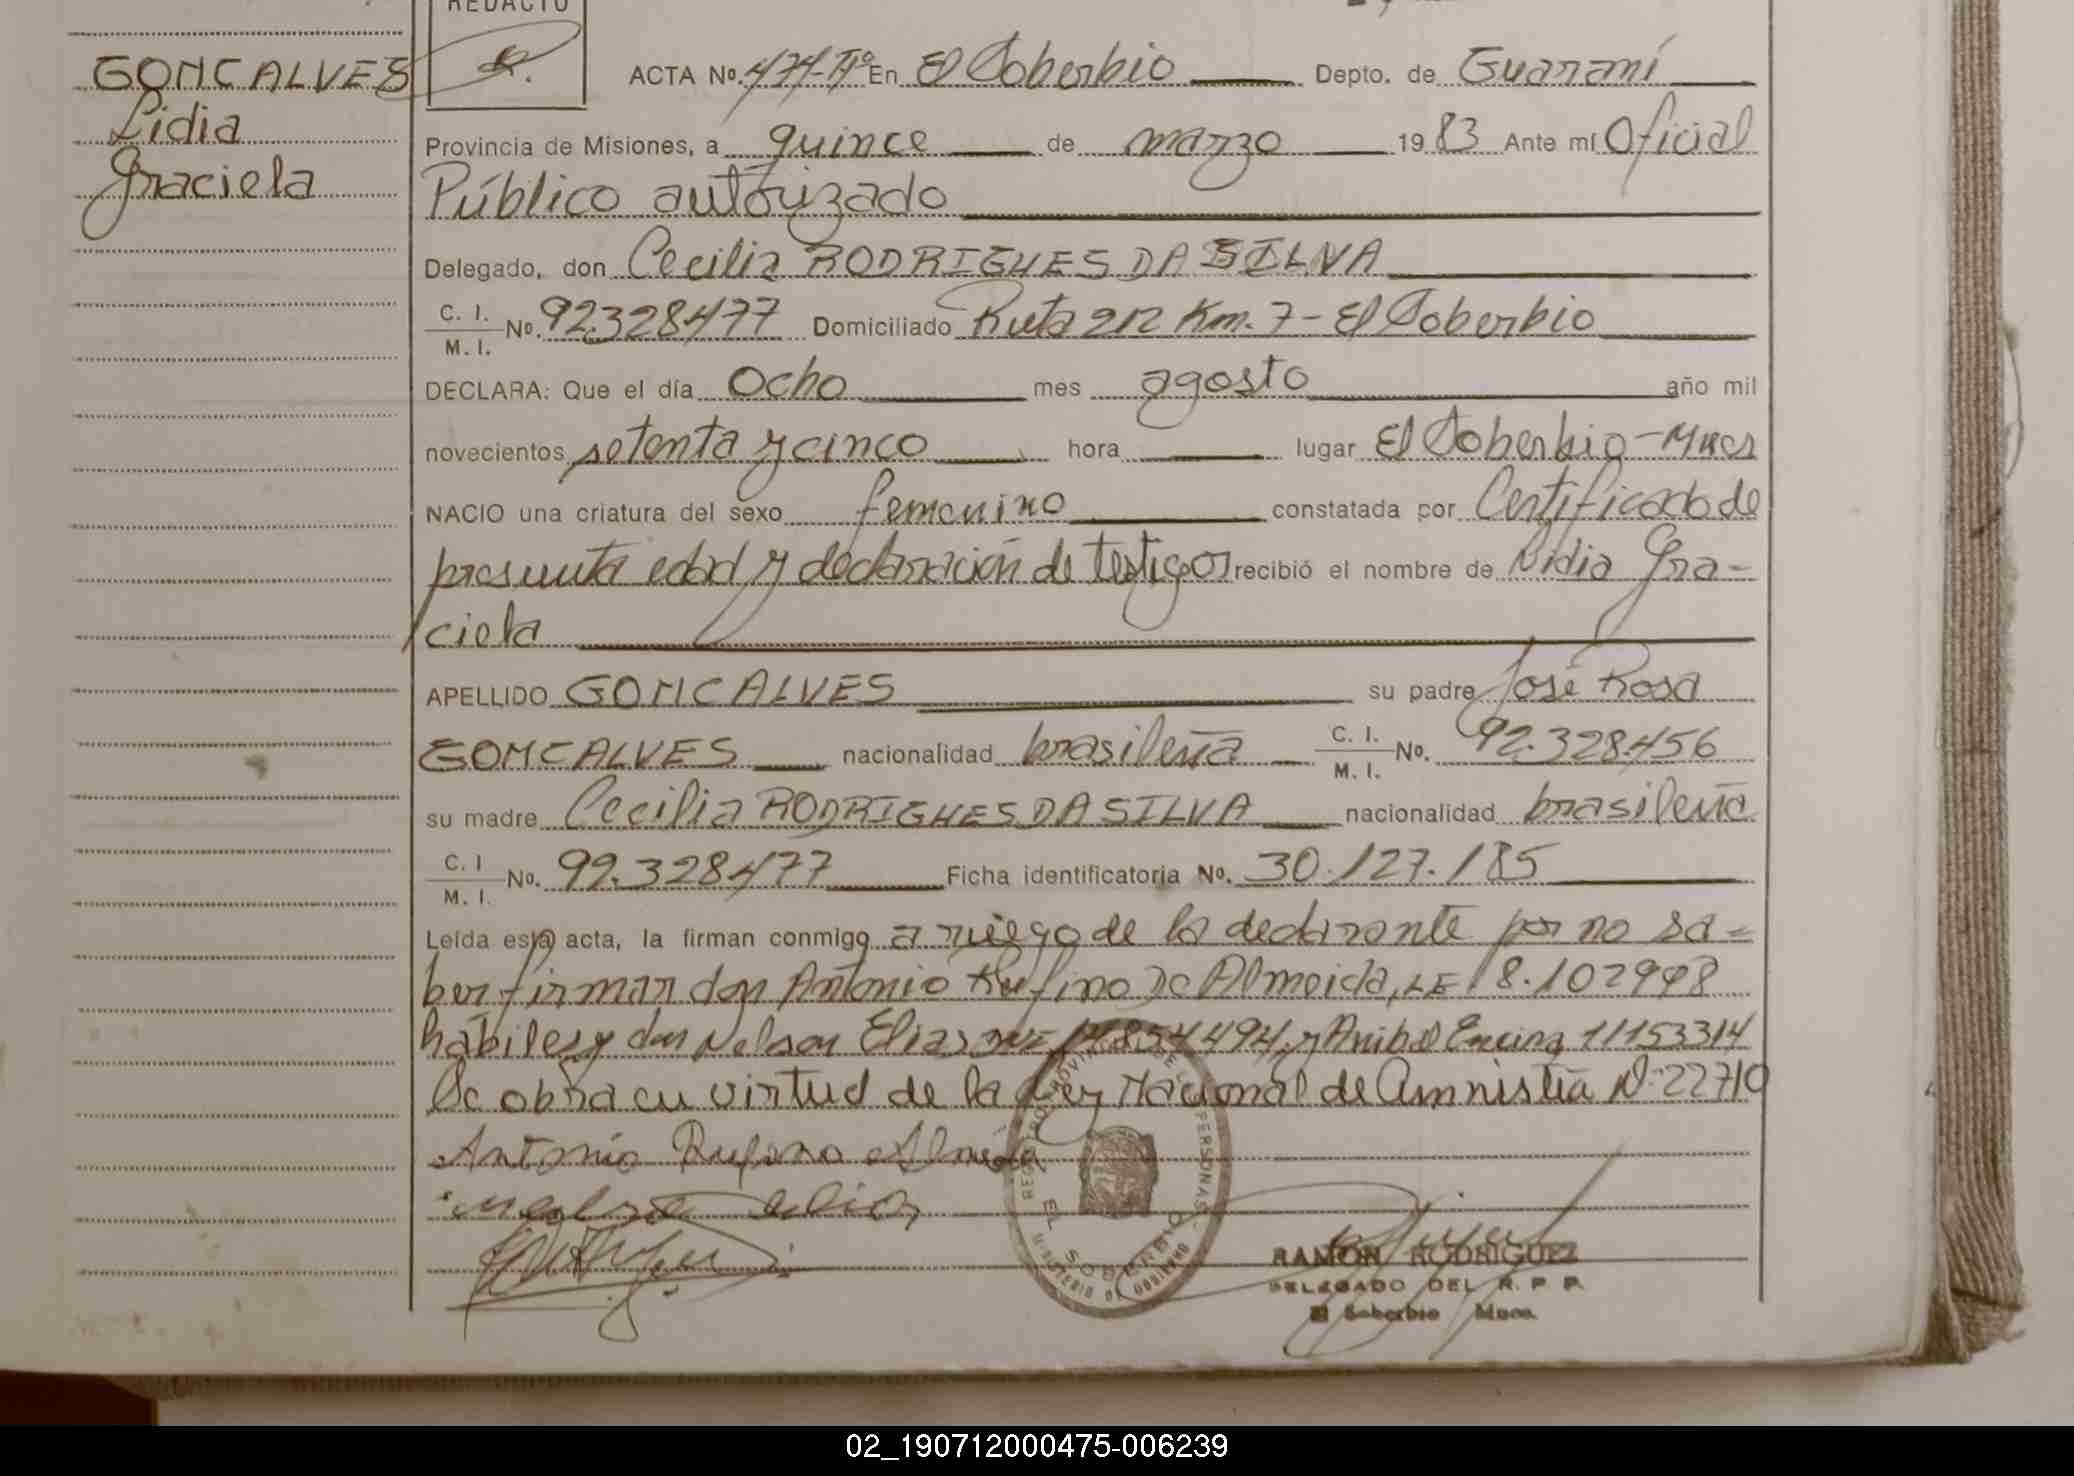 REDACTO
GONCALVES
Lidia
Graciela
ACTA Nº. 474-Tº En El Soberbio Depto. de Guaraní
Provincia de Misiones, a quince de marzo 1983 Ante mí Oficial
Público autorizado
Delegado, don Cecilia RODRIGUES DA SILVA
C. I. / M. I. Nº. 92.328477 Domiciliado Ruta 212 Km. 7 - El Soberbio
DECLARA: Que el día ocho mes agosto año mil
novecientos setenta y cinco hora lugar El Soberbio - Mnes
NACIO una criatura del sexo femenino constatada por Certificado de
presunta edad y declaración de testigos recibió el nombre de Lidia Gra-
ciela
APELLIDO GONCALVES su padre José Rosa
GONCALVES nacionalidad brasileña C. I. / M. I. Nº. 92.328.456
su madre Cecilia RODRIGUES DA SILVA nacionalidad brasileña
C. I / M. I. Nº. 92.328477 Ficha identificatoria Nº. 30.127.185
Leída esta acta, la firman conmigo a ruego de la declarante por no sa-
ber firmar don Antonio Rufino De Almeida, LE 8.102998
hábiles y don Nelson Elias 14854494 y Anibal Encina 11153314
Se obra en virtud de la Ley Nacional de Amnistía Nº 22710
Antonio Rufino Almeida
REGISTRO PROVINCIAL DE LAS PERSONAS
EL SOBERBIO
MINISTERIO DE GOBIERNO
RAMON RODRIGUEZ
DELEGADO DEL R. P. P.
El Soberbio Mnes.
02_190712000475-006239